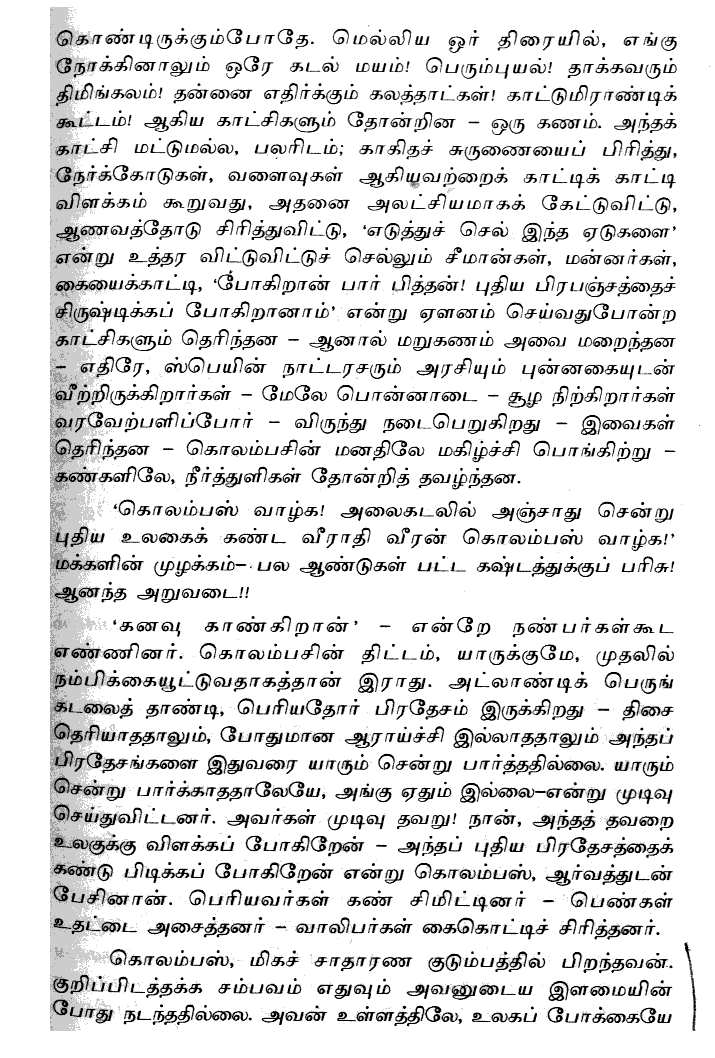 கொண்டிருக்கும்போதே. மெல்லிய ஓர் திரையில், எங்கு
நோக்கினாலும் ஒரே கடல் மயம்! பெரும்புயல்! தாக்கவரும்
திமிங்கலம்! தன்னை எதிர்க்கும் கலத்தாட்கள்! காட்டுமிராண்டிக்
கூட்டம்! ஆகிய காட்சிகளும் தோன்றின – ஒரு கணம். அந்தக்
காட்சி மட்டுமல்ல, பலரிடம்; காகிதச் சுருணையைப் பிரித்து,
நேர்க்கோடுகள், வளைவுகள் ஆகியவற்றைக் காட்டிக் காட்டி
விளக்கம் கூறுவது, அதனை அலட்சியமாகக் கேட்டுவிட்டு,
ஆணவத்தோடு சிரித்துவிட்டு, 'எடுத்துச் செல் இந்த ஏடுகளை'
என்று உத்தர விட்டுவிட்டுச் செல்லும் சீமான்கள், மன்னர்கள்,
கையைக்காட்டி, 'போகிறான் பார் பித்தன்! புதிய பிரபஞ்சத்தைச்
சிருஷ்டிக்கப் போகிறானாம்' என்று ஏளனம் செய்வதுபோன்ற
காட்சிகளும் தெரிந்தன – ஆனால் மறுகணம் அவை மறைந்தன
– எதிரே, ஸ்பெயின் நாட்டரசரும் அரசியும் புன்னகையுடன்
வீற்றிருக்கிறார்கள் – மேலே பொன்னாடை – சூழ நிற்கிறார்கள்
வரவேற்பளிப்போர் – விருந்து நடைபெறுகிறது – இவைகள்
தெரிந்தன – கொலம்பசின் மனதிலே மகிழ்ச்சி பொங்கிற்று –
கண்களிலே, நீர்த்துளிகள் தோன்றித் தவழ்ந்தன.
'கொலம்பஸ் வாழ்க! அலைகடலில் அஞ்சாது சென்று
புதிய உலகைக் கண்ட வீராதி வீரன் கொலம்பஸ் வாழ்க!'
மக்களின் முழக்கம்– பல ஆண்டுகள் பட்ட கஷ்டத்துக்குப் பரிசு!
ஆனந்த அறுவடை!!
'கனவு காண்கிறான்' – என்றே நண்பர்கள்கூட
எண்ணினர். கொலம்பசின் திட்டம், யாருக்குமே, முதலில்
நம்பிக்கையூட்டுவதாகத்தான் இராது. அட்லாண்டிக் பெருங்
கடலைத் தாண்டி, பெரியதோர் பிரதேசம் இருக்கிறது – திசை
தெரியாததாலும், போதுமான ஆராய்ச்சி இல்லாததாலும் அந்தப்
பிரதேசங்களை இதுவரை யாரும் சென்று பார்த்ததில்லை. யாரும்
சென்று பார்க்காததாலேயே, அங்கு ஏதும் இல்லை–என்று முடிவு
செய்துவிட்டனர். அவர்கள் முடிவு தவறு! நான், அந்தத் தவறை
உலகுக்கு விளக்கப் போகிறேன் – அந்தப் புதிய பிரதேசத்தைக்
கண்டு பிடிக்கப் போகிறேன் என்று கொலம்பஸ், ஆர்வத்துடன்
பேசினான். பெரியவர்கள் கண் சிமிட்டினர் – பெண்கள்
உதட்டை அசைத்தனர் – வாலிபர்கள் கைகொட்டிச் சிரித்தனர்.
கொலம்பஸ், மிகச் சாதாரண குடும்பத்தில் பிறந்தவன்.
குறிப்பிடத்தக்க சம்பவம் எதுவும் அவனுடைய இளமையின்
போது நடந்ததில்லை. அவன் உள்ளத்திலே, உலகப் போக்கையே